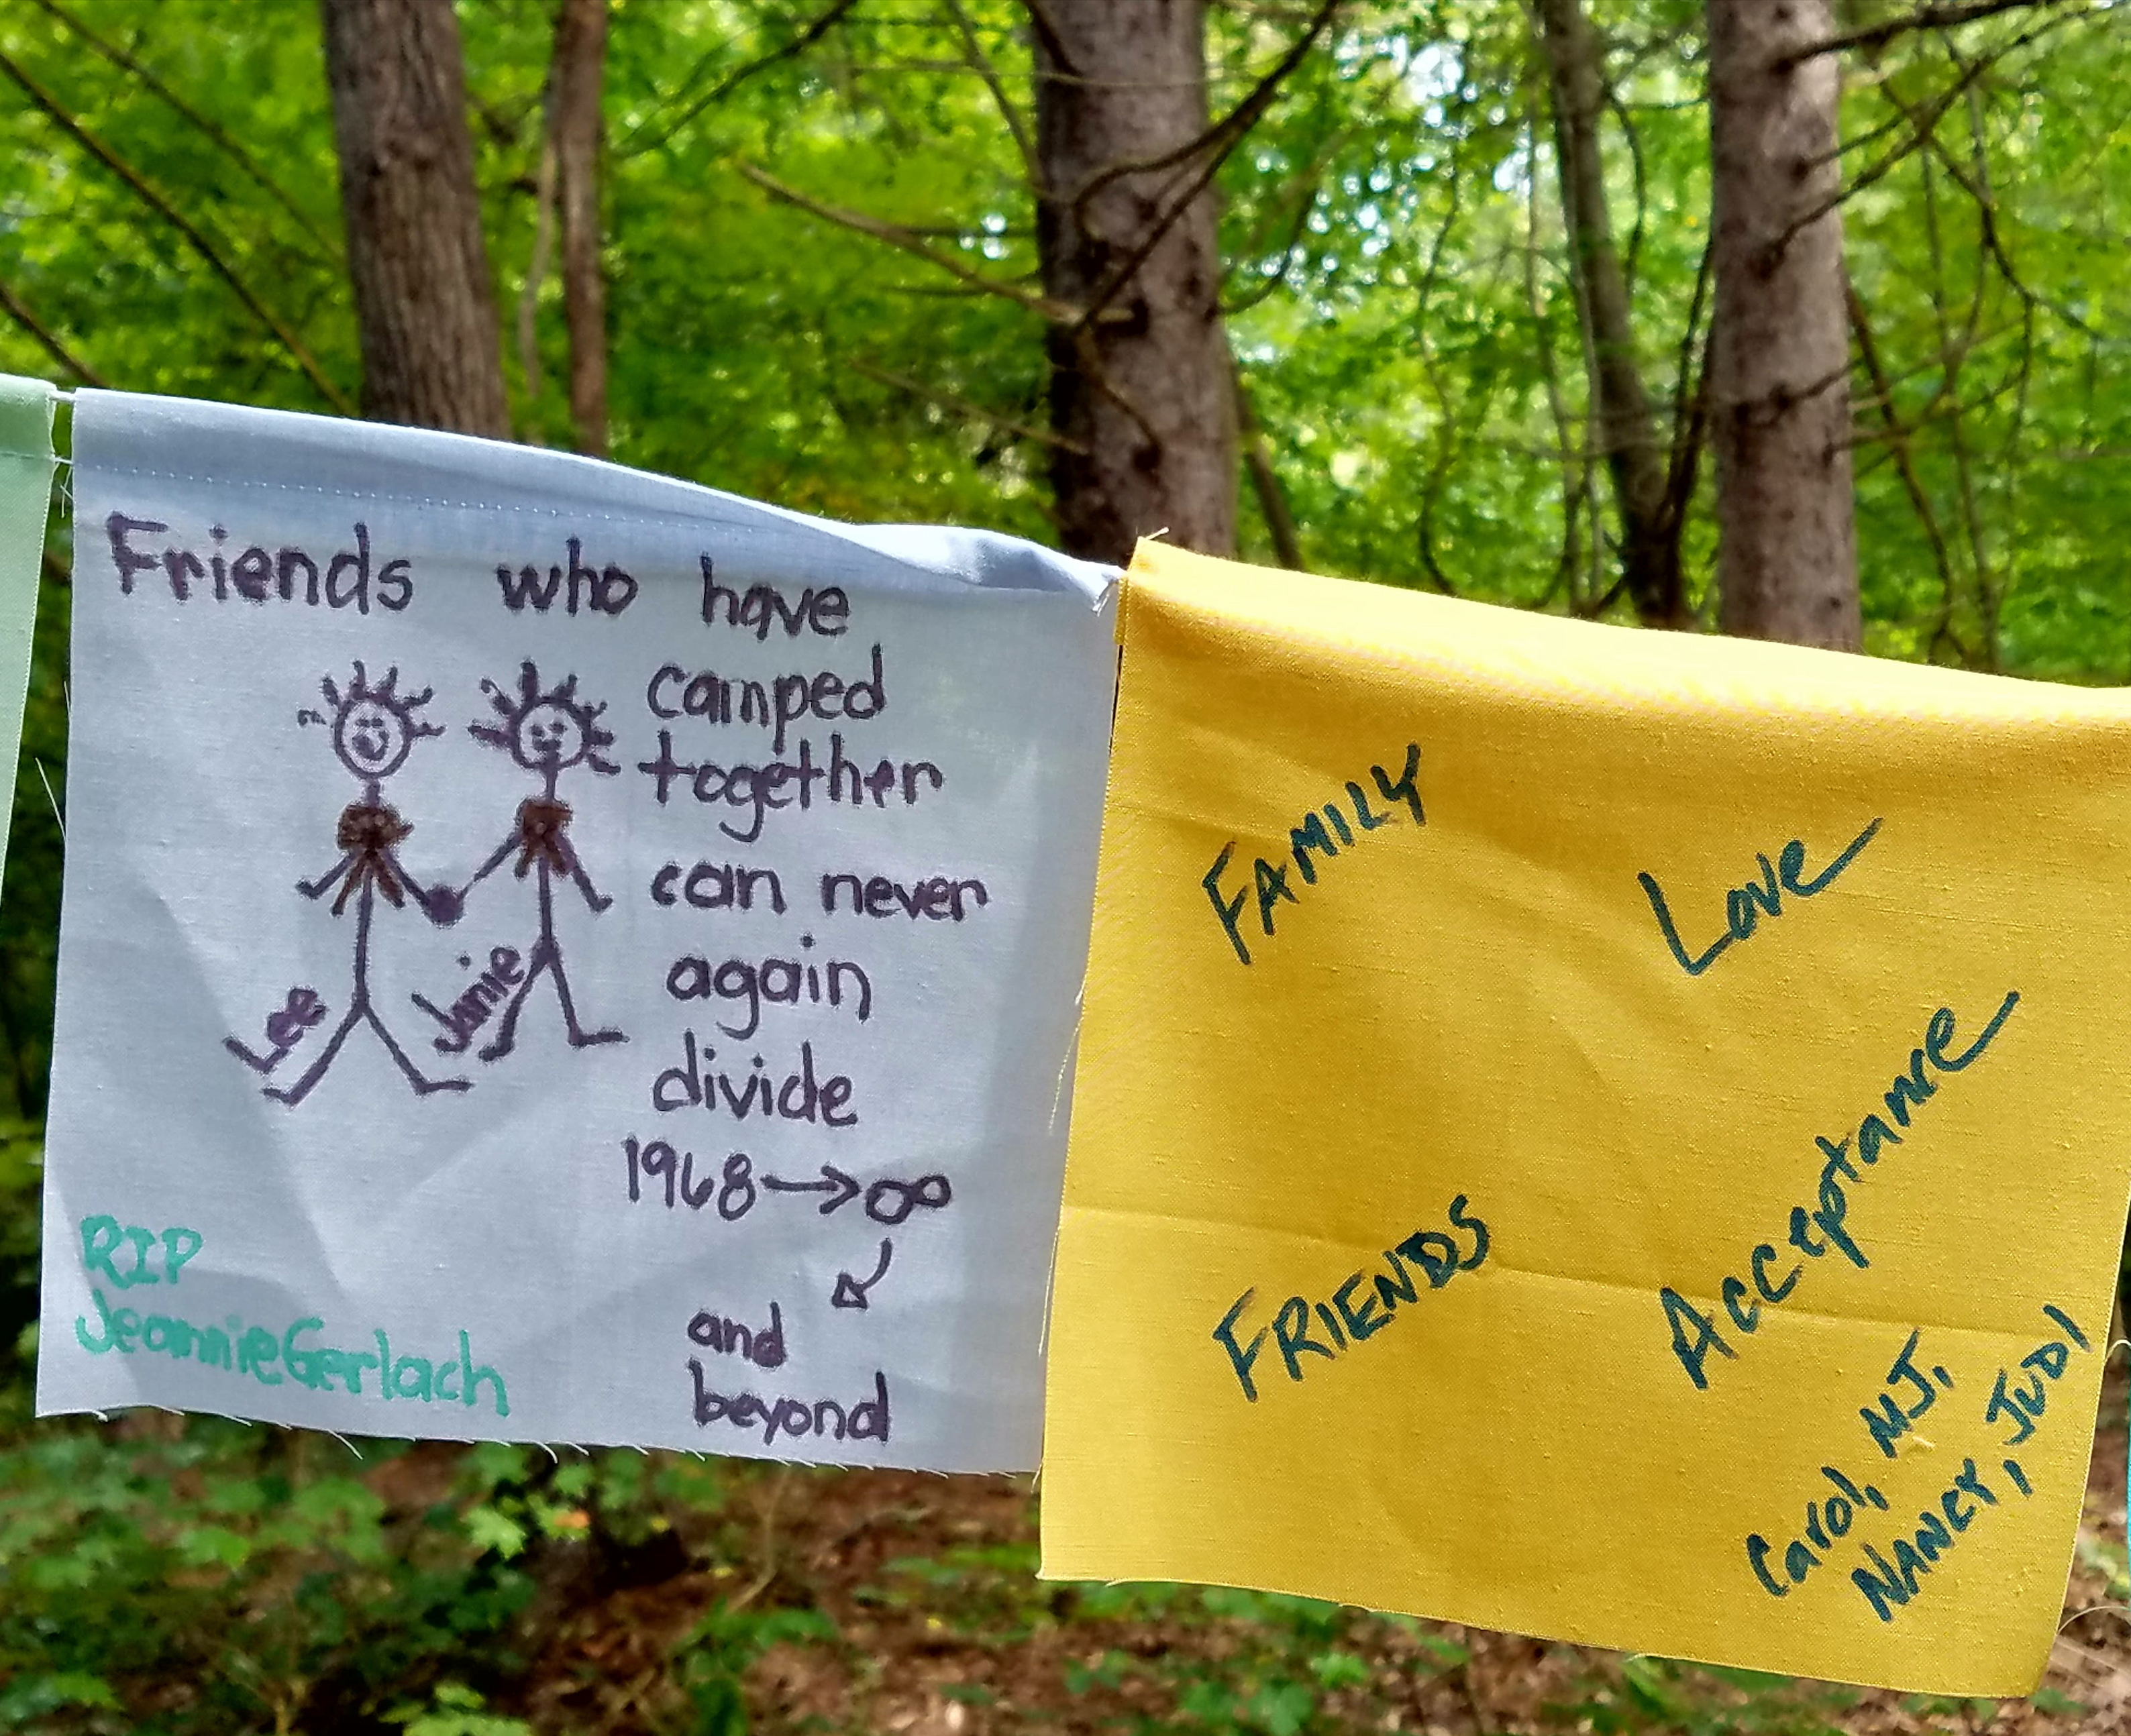 Friends who have
camped
together
can never
again
divide
1968→∞
and
beyond
Lee
Janie
RIP
Jeannie Gerlach
FAMILY
Love
FRIENDS
Acceptance
Carol, MJ,
NANCY, JUDI